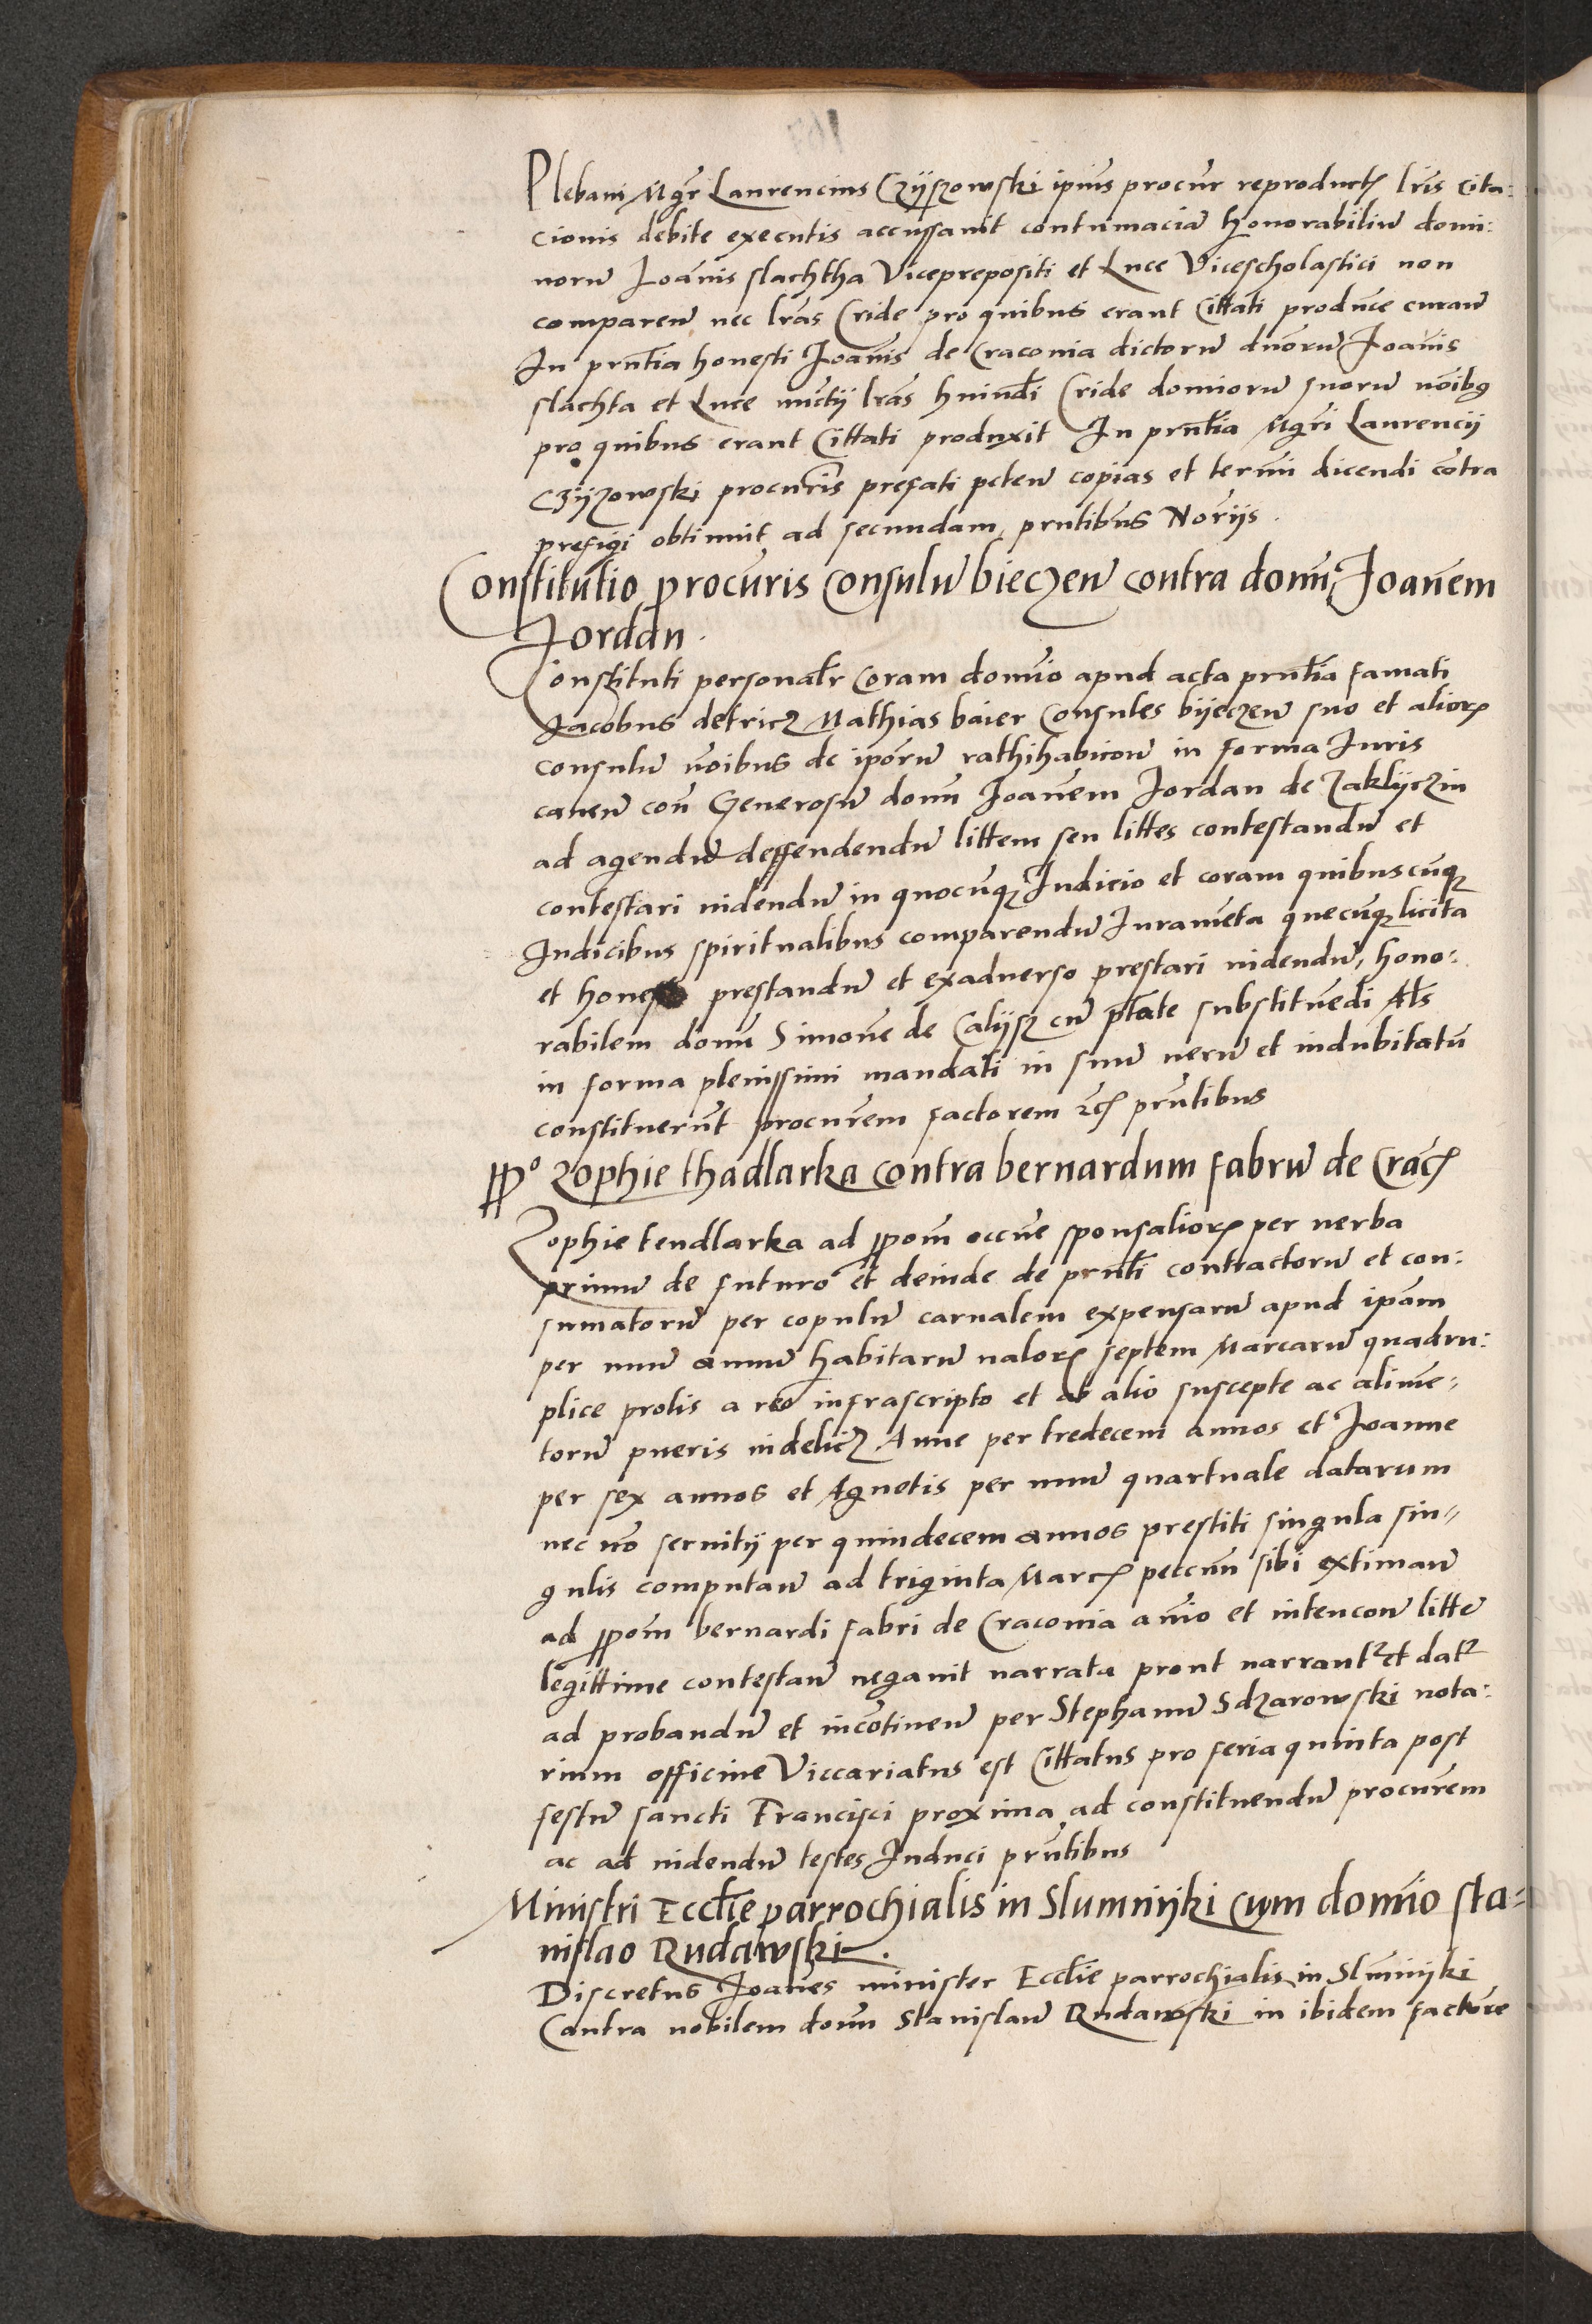 Plebani Mgr̃ Laurencius Czÿszowski ip̃ius procur̃ reproductꝭ lr̃is cita:
cionis debite executis accussauit contumaciã honorabiliũ domi:
norũ Joãnis slachtha Viceprepositi et Luce Vicescholastici non
comparen̄ nec lr̃as Cride pro quibus erant Cittati produc̃e curan̄
In pñtia honesti Joãnis de Cracouia dictorũ dñorũ Joãnis
slachta et Luce nunctÿ lr̃as huiuõdi Cride dominorũ suorũ nõibꝯ
pro quibus erant Cittati produxit In pñtia Mgr̃i Laurencÿ
Czÿzowski procuris̃ prefati peten̄ copias et termi dicendi cõtra
prefigi obtinuit ad secundam pñtibus Norÿs.
Constitutio procuris Consulũ bieczen̄ contra domũ Joañem
Jordan.
Constituti personal̃r Coram domĩo apud acta pñtia famati
Jacobus detricz Mathias baier Consules bÿeczen̄ suo et aliorꝭ
consulũ nõibus de ipõrũ rathihabicon̄ in forma Juris
cauen̄ con̄ Generosũ domũ Joañem Jordan de Zaklÿczin
ad agendũ deffendendũ littem seu littes contestandũ et
contestari uidendũ in quocũqꝫ Iudicio et coram quibuscũqꝫ
Iudicibus spiritualibus comparendũ Iuramẽta quecũqꝫ licita
et honesta prestandũ et exaduerso prestari uidendũ, hono:
rabilem domũ Simonẽ de Calÿsz cũ ptãte substituẽdi Al̃s
in forma plenissimi mandati in suũ uerũ et indubitatũ
constituerũt procur̃em factorem ꝛcꝭ pñtibus
ꝓpo Zophie thadlarka contra bernardum fabrũ de Cracꝭ
Zophie tendlarka ad ꝓpom̃ occñe sponsaliorꝭ per uerba
primũ de futuro et deinde de pñti contractorũ et con:
sumatorũ per copulũ carnalem expensarũ apud ipãm
per unũ annũ habitarũ ualorꝭ septem Marcarũ quadru:
plice prolis a reo infrascripto et ab alio suscepte ac alimẽ:
torũ pueris uidelicꝫ Anne per tredecem annos et Joanne
per sex annos et Agnetis per unũ quartuale datarum
nec nõ seruitÿ per quindecem annos prestiti singula sin:
gulis computan̄ ad triginta Marcꝭ peccun̄ sibi extiman̄
ad ꝓpom̃ bernardi fabri de Cracouia añio et intencon̄ litte
legittime contestan̄ negauit narrata prout narrantᷣ et datᷣ
ad probandũ et incõtinen̄ per Stephanũ Sdzarowski nota:
rium officine Viccariatus est Cittatus pro feria quinta post
festũ sancti Francisci proxima ad constituendũ procur̃em
ac ad uidendũ testes Induci pñtibus
Ministri Eccl̃ie parrochialis in Slumnÿki Cum domĩo sta=
nislao Rudawski.
Discretus Joañes minister Eccl̃ie parrochialis in Slm̃nÿki
Contra nobilem domũ Stanislaũ Rudawski in ibidem factorẽ